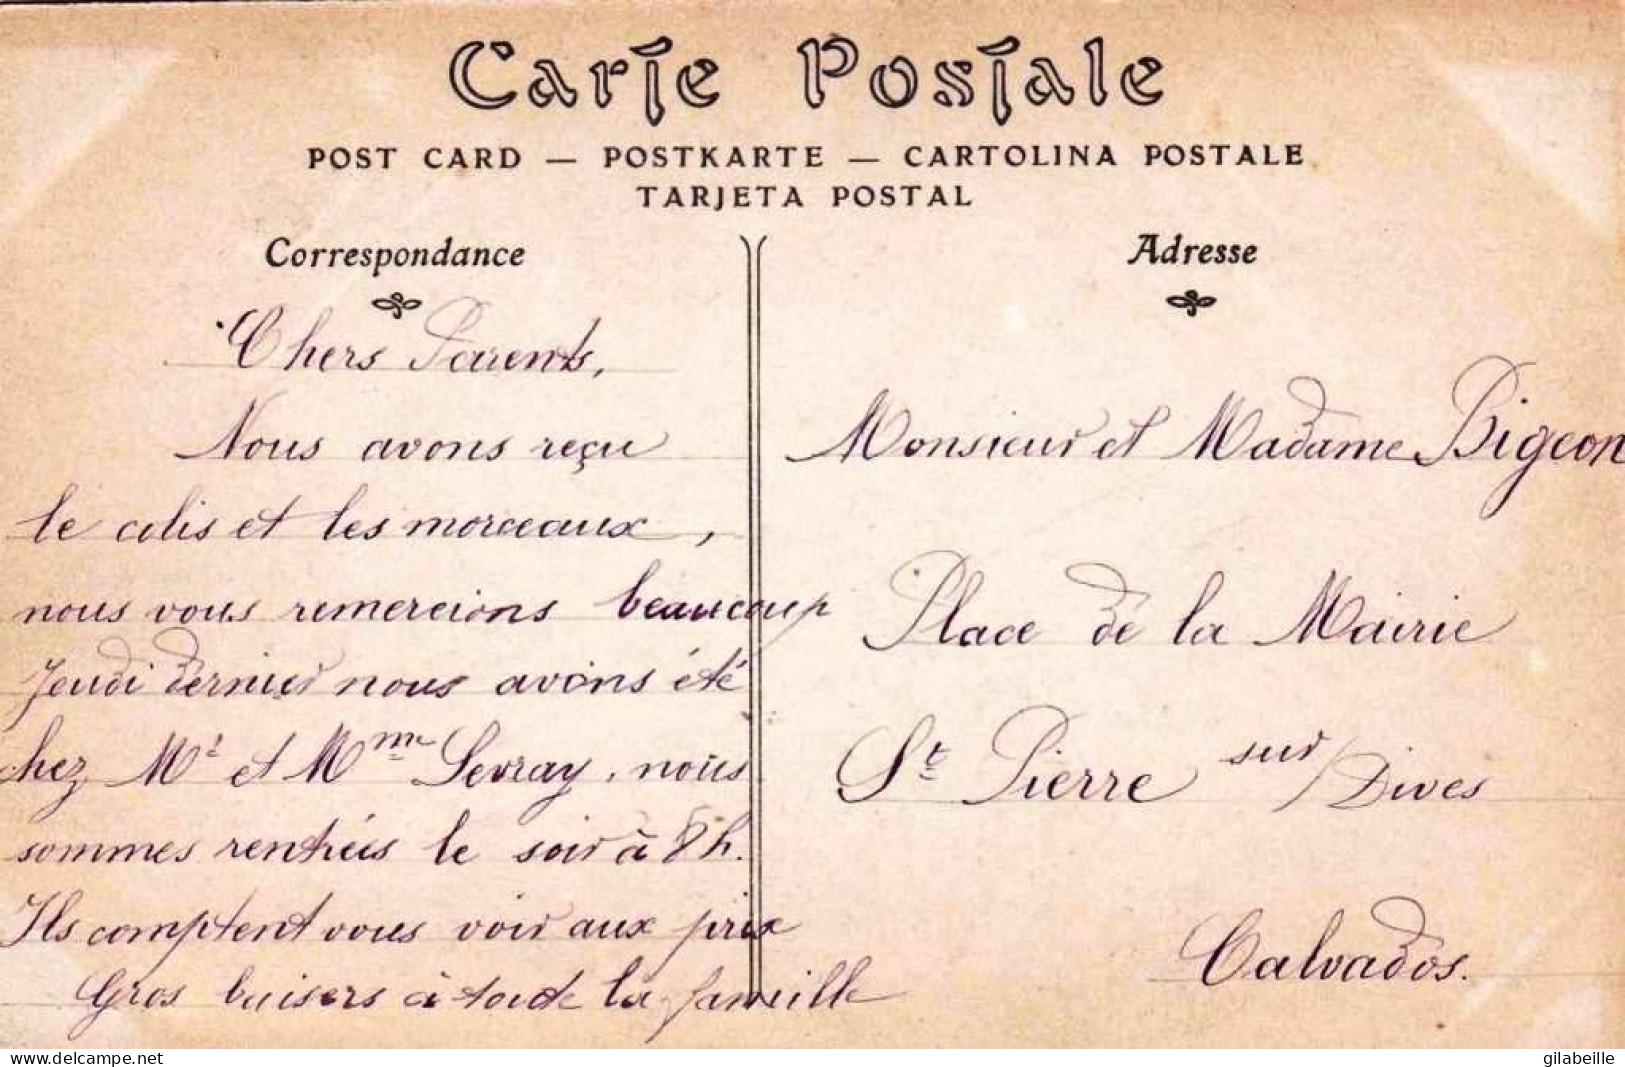 Carte Postale
POST CARD — POSTKARTE — CARTOLINA POSTALE
TARJETA POSTAL
Correspondance
Chers Parents,
Nous avons reçu
le colis et les morceaux,
nous vous remercions beaucoup
Jeudi dernier nous avons été
chez Mr et Mme Levray, nous
sommes rentrées le soir à 8 h.
Ils comptent vous voir aux prix
Gros baisers à toute la famille
Adresse
Monsieur et Madame Bigeon
Place de la Mairie
St Pierre sur/Dives
Calvados.
delcampe.net
gilabeille